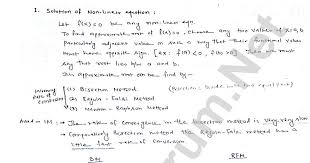 1. Solution of Non-linear equation :
Let f(x) = 0 be any non-linear eqn.
To find approximate root of f(x)=0, choose any two values of x=a, b
Particularly adjacent value on such a way that their functional value
must have opposite sign. [ex: f(a) <0, f(b) >0]. Then we must
say that root lies b/w a and b.
The approximate root can be find by –
(1) Bisection Method
(2) Regula - Falsi Method
(3) Newton - Raphson Method
→ The rate of convergence in the bisection method is very very slow
→ Comparatively Bisection method the Regula-Falsi method has a
little fast rate of conversion
BM RFM
rum.Net